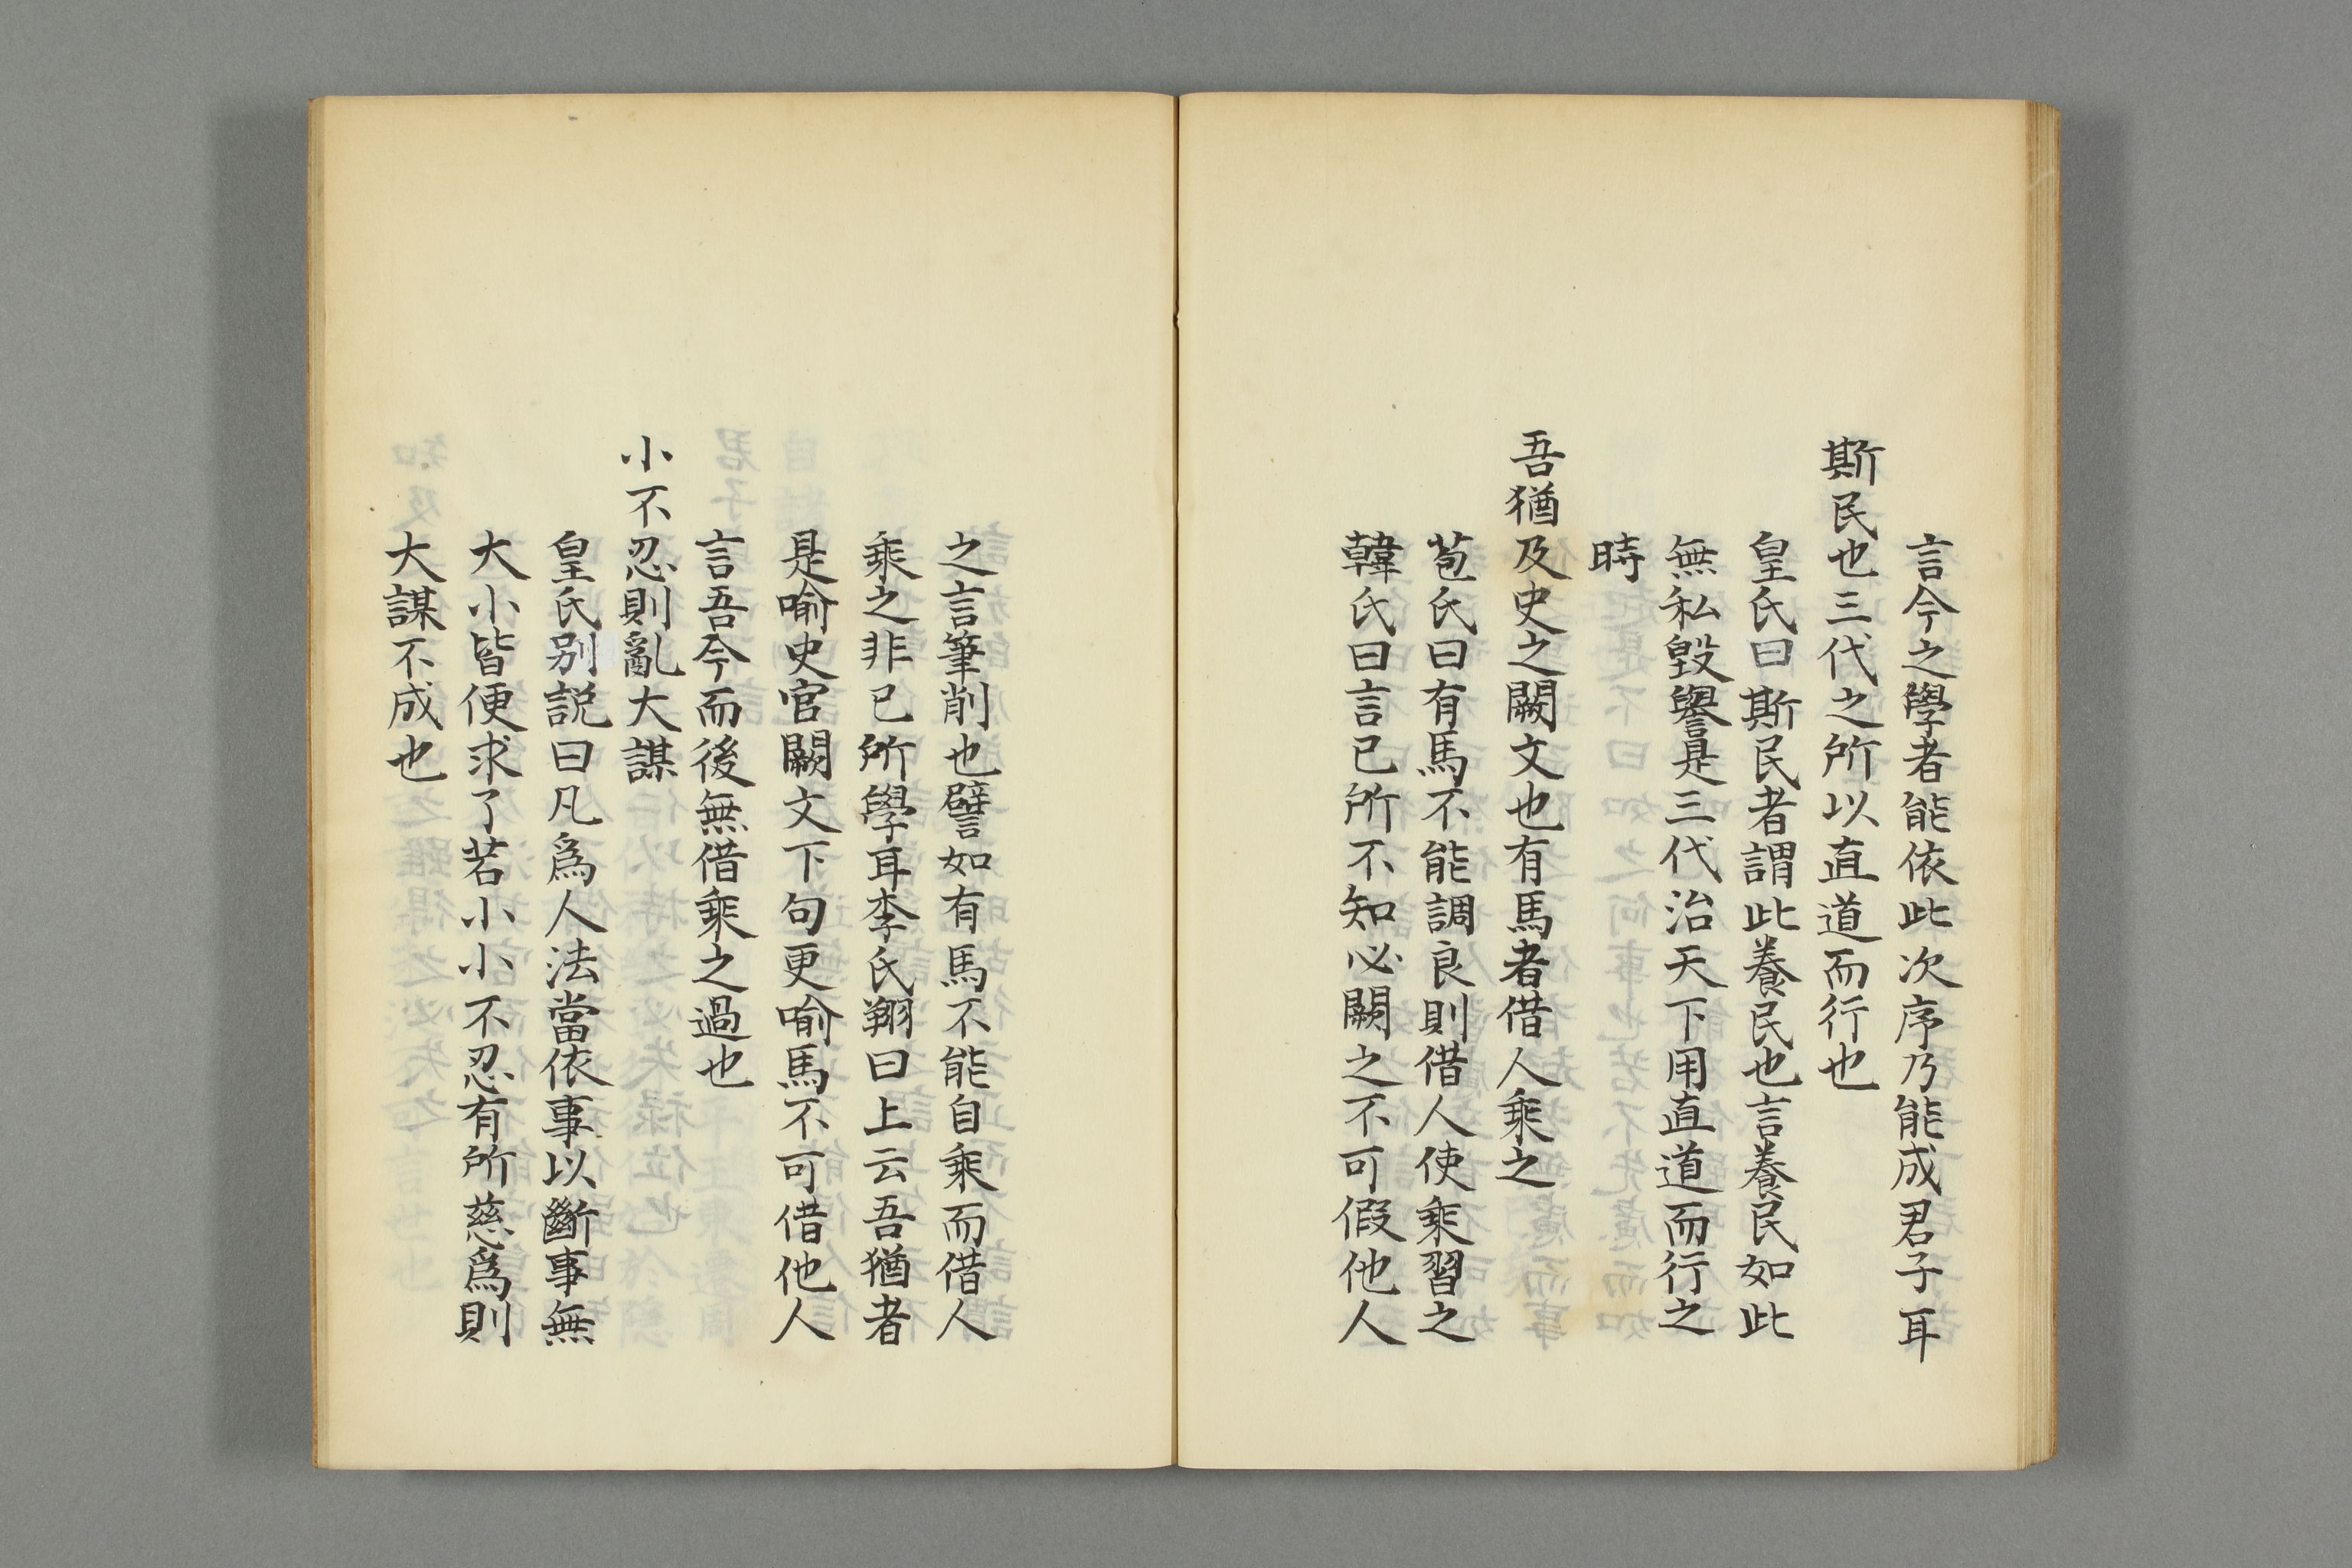 言今之學者能依此次序乃能成君子耳
斯民也三代之所以直道而行也
皇氏曰斯民者謂此養民也言養民如此
無私毀譽是三代治天下用直道而行之
時
吾猶及史之闕文也有馬者借人乘之
苞氏曰有馬不能調良則借人使乘習之
韓氏曰言已所不知必闕之不可假他人
之言筆削也譬如有馬不能自乘而借人
乘之非已所學耳李氏翔曰上云吾猶者
是喻史官闕文下句更喻馬不可借他人
言吾今而後無借乘之過也
小不忍則亂大謀
皇氏别説曰凡爲人法當依事以斷事無
大小皆便求了若小小不忍有所慈爲則
大謀不成也